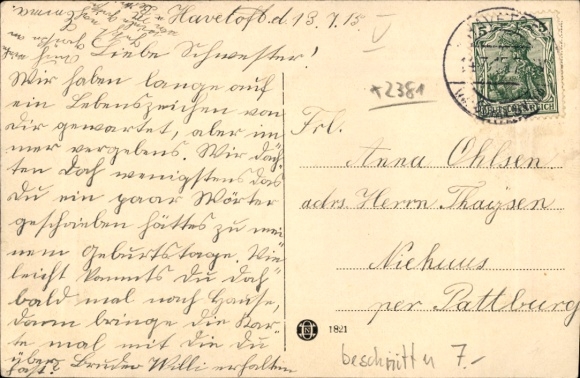 Havetoft d. 13.7.15.
Liebe Schwester!
Wir haben lange auf
ein Lebenszeichen von
dir gewartet, aber im
mer vergebens. Wir däch
ten doch wenigstens das
Du ein paar Wörter
geschrieben hättes zu mei
nem Geburtstage. Vie
leicht kommts Du doch
bald mal nach Hause,
dann bringe die Kar
te mal mit die Du
über Bruder Willi erhalten
hast.
*2381
Frl.
Anna Ohlsen
adrs Herrn Thaysen
Niehuus
per Pattburg
1821
beschnitten 7.-